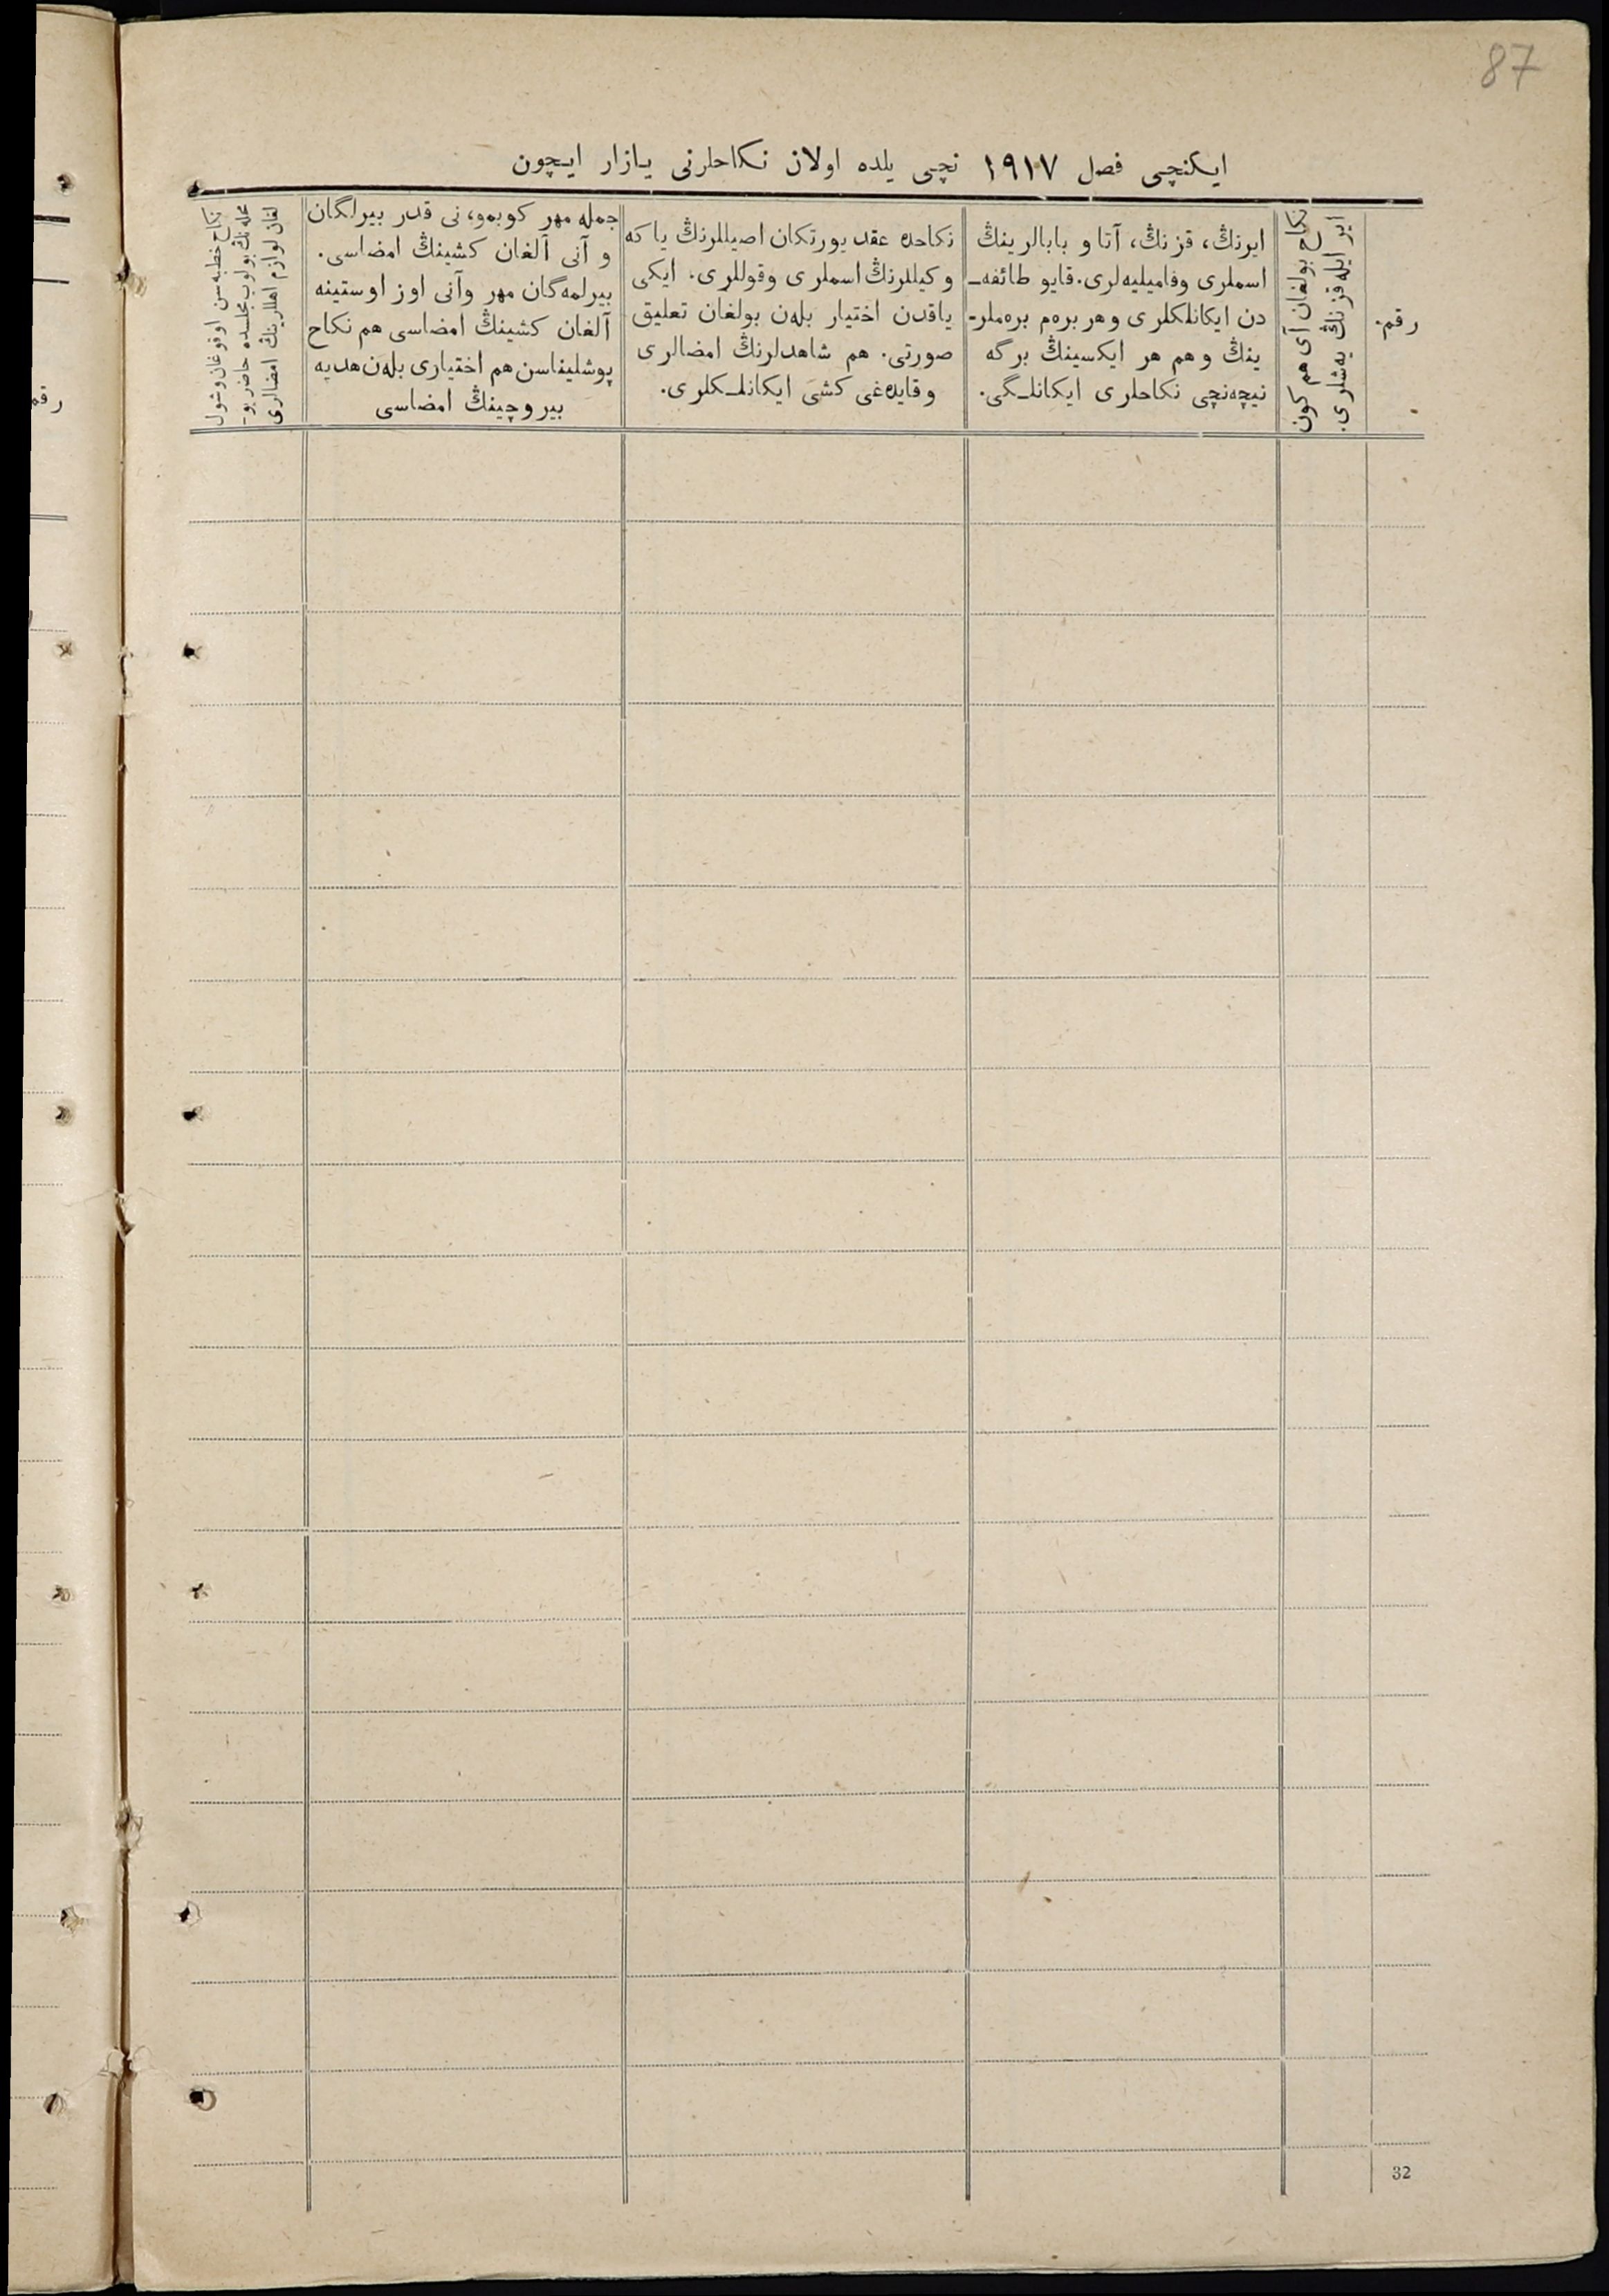 87
ایکنچی فصل ۱۹۱۷ نچی یلده اولان نکاحلرنی یازار ایچون
رقم.
نکاح بولغان آی هم کون
ایر ایله قزنڭ یەشلری.
ایرنڭ، قزنڭ، آتا و بابالرینڭ
اسملری وفامیلیەلری. قایو طائفه‌ـ
دن ایکانلکلری وهر برەم برەملرـ
ینڭ وهم هر ایکسینڭ برگه
نیچەنچی نکاحلری ایکانلـگی.
نکاحده عقد یورتکان اصیللرنڭ یا که
وکیللرنڭ اسملری وقوللری. ایکی
یاقدن اختیار بلەن بولغان تعلیق
صورتی. هم شاهدلرنڭ امضالری
وقایدەغی کشی ایکانلـکلری.
جمله مهر کوبمو، نی قدر بیرلگان
و آنی آلغان کشینڭ امضاسی.
بیرلمەگان مهر وآنی اوز اوستینه
آلغان کشینڭ امضاسی هم نکاح
پوشلیناسن هم اختیاری بلەن هدیه
بیروچینڭ امضاسی
نکاح خطبه سن اوقوغان وشول
محله نڭ بولوب مجلسده حاضر بوـ
لغان لوازم اهللرینڭ امضالری
32
رقم